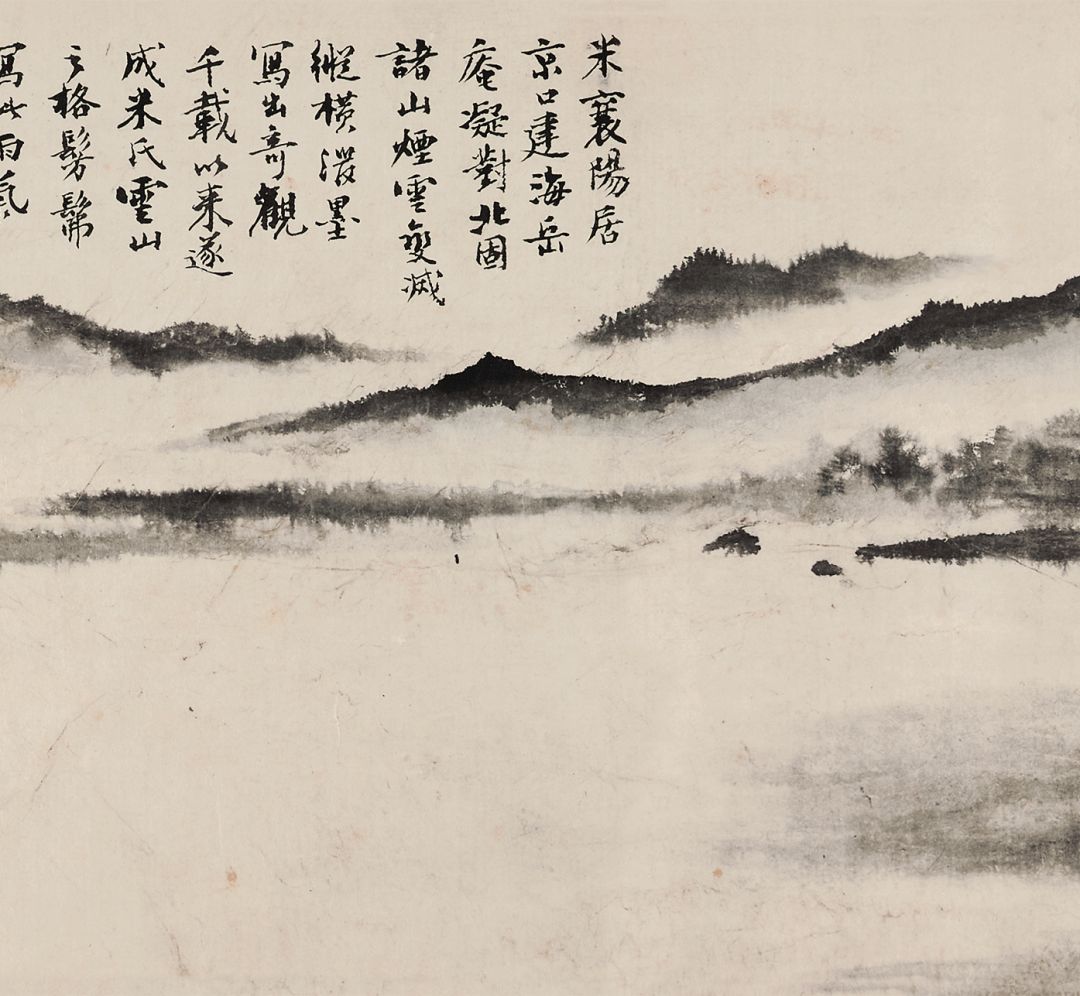 米襄陽居
京口建海岳
庵凝對北固
諸山煙雲變滅
縱橫潑墨
寫出奇觀
千載以來遂
成米氏雲山
之格髣髴
寫此雨氣